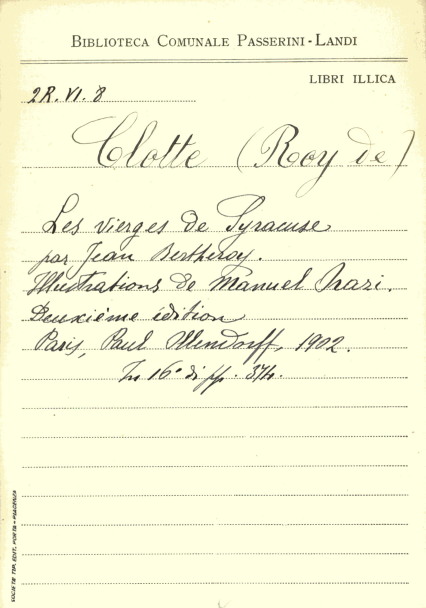 BIBLIOTECA COMUNALE PASSERINI-LANDI
LIBRI ILLICA
2R. VI. 8
Clotte (Roy de)
Les vierges de Syracuse
par Jean Bertheroy.
Illustrations de Manuel Orazi.
Deuxième édition
Paris, Paul Ollendorff, 1902.
In 16° di pp. 374.
SOCIETÀ TIP. EDIT. PORTA - PIACENZA